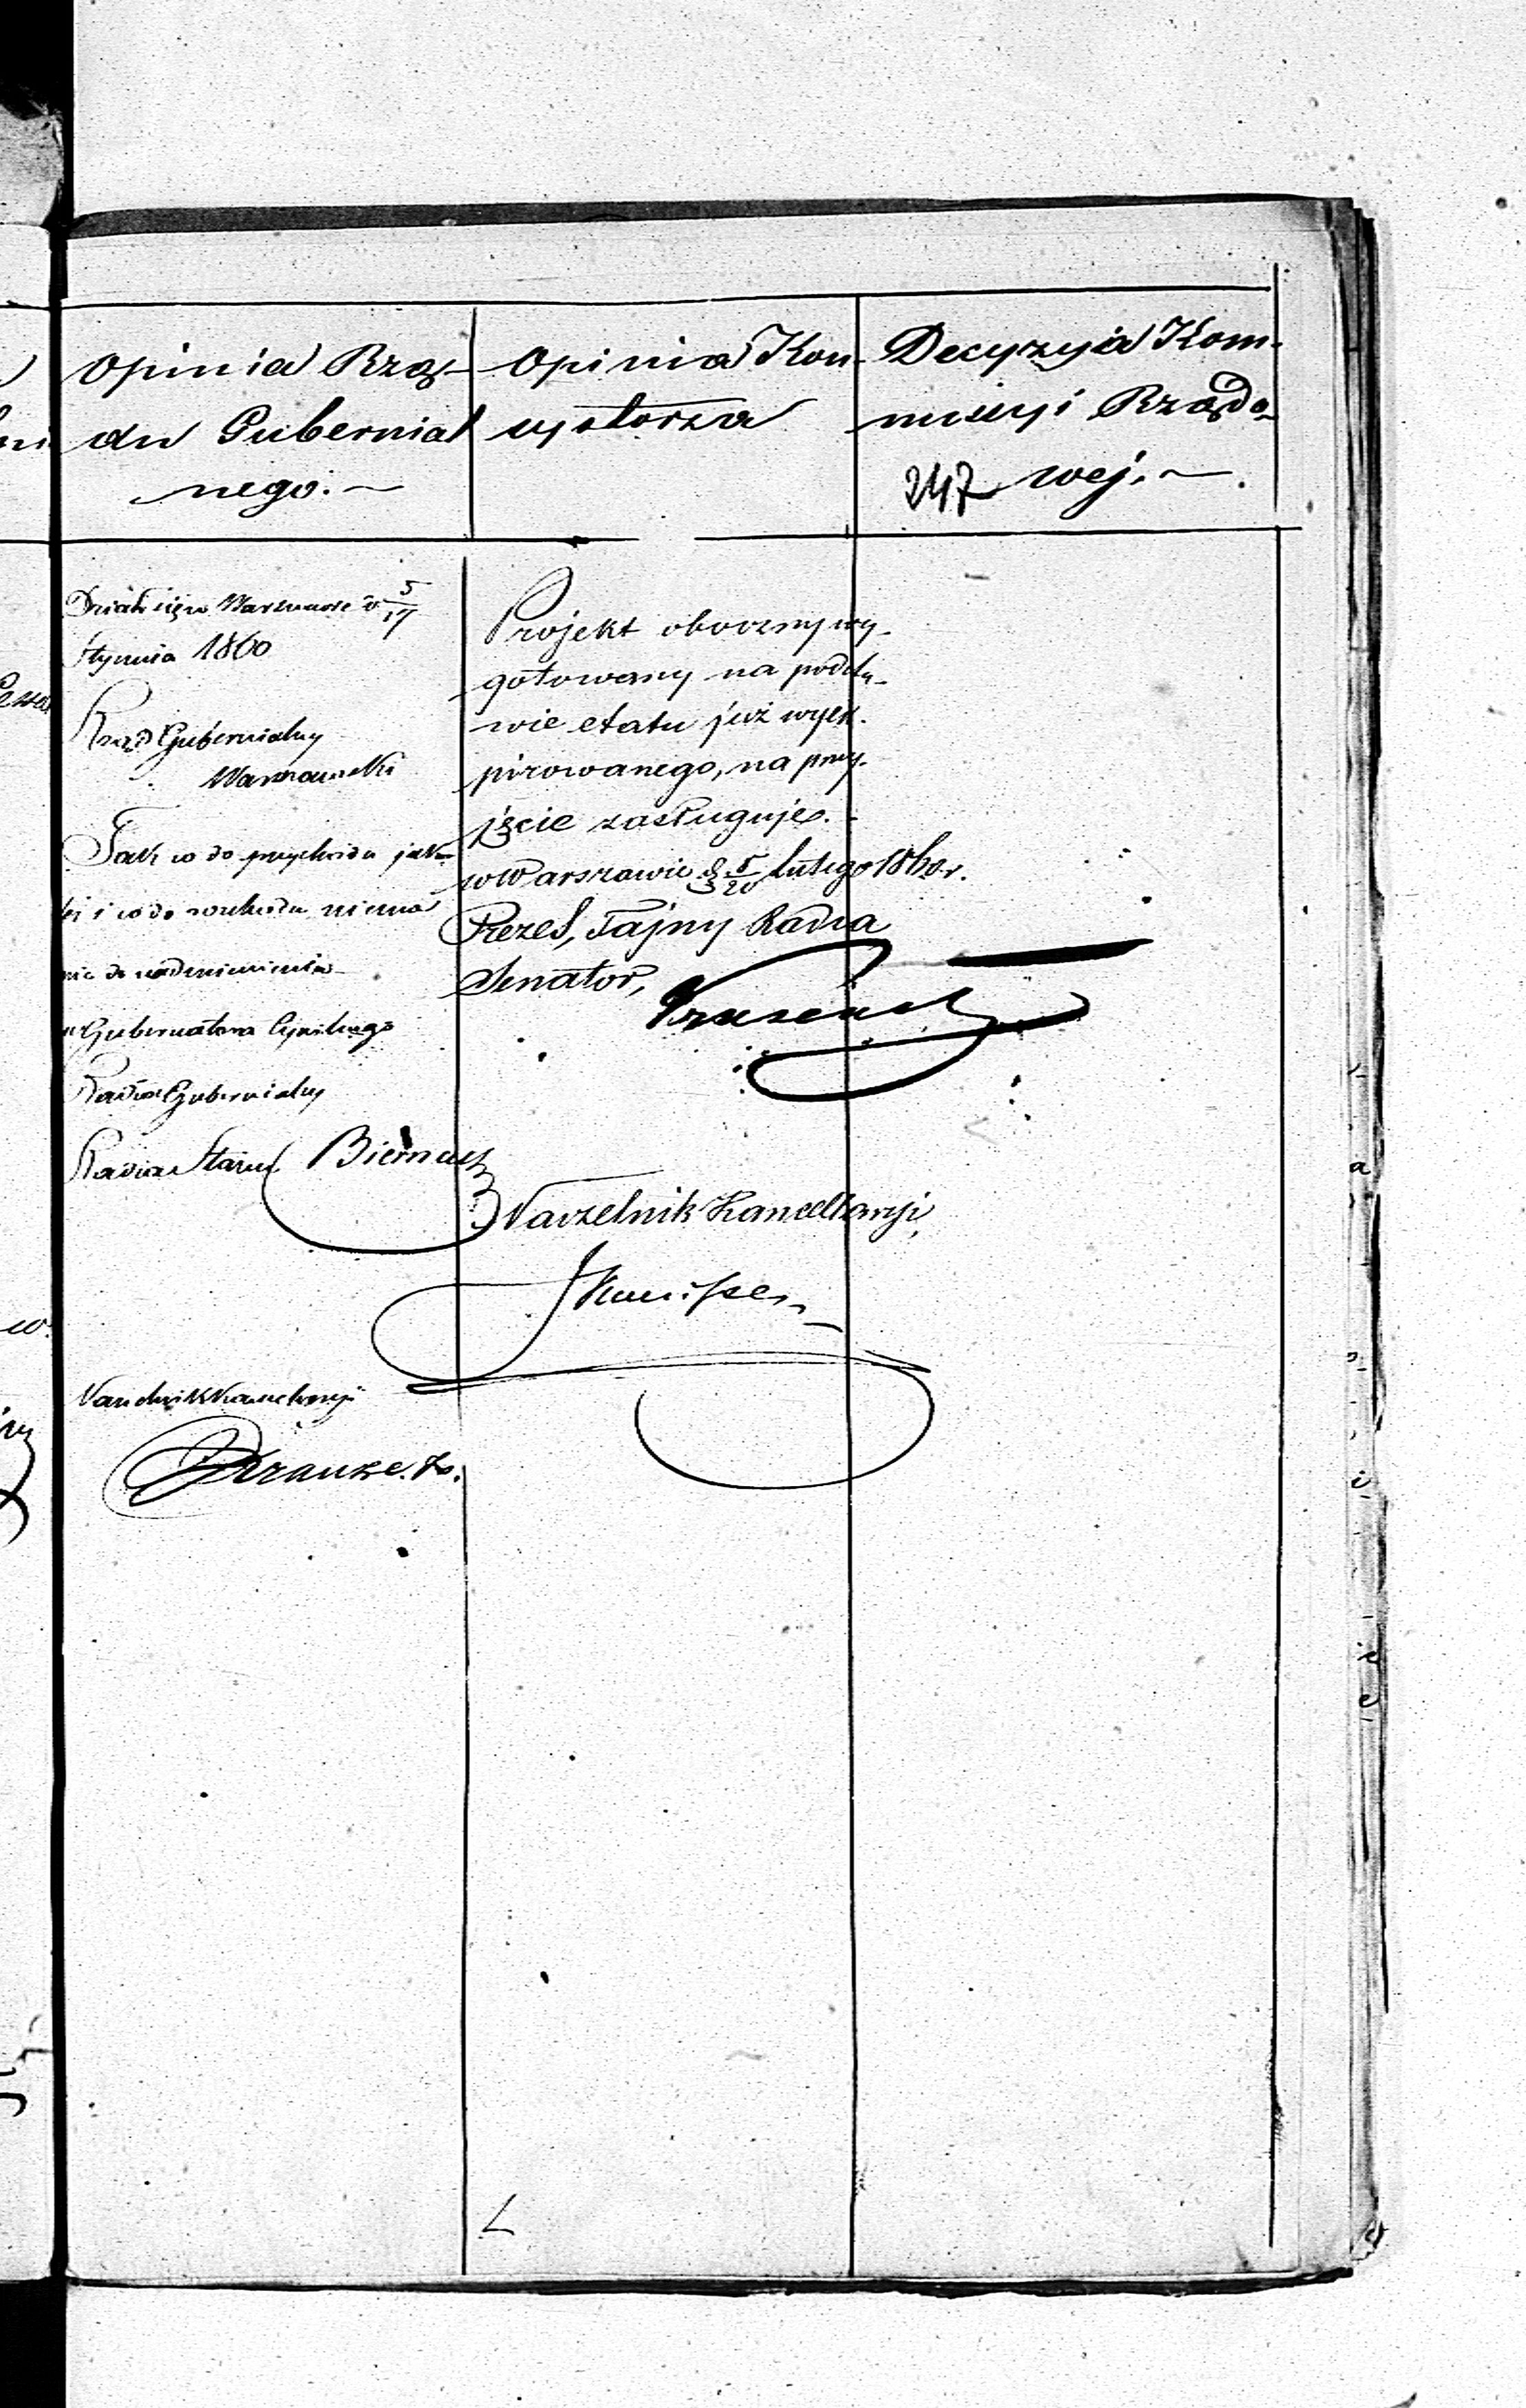 Opinia Rzą-
du Gubernial
nego.
Opinia Kon-
systorza
Decyzyia Kom-
missyi Rządo-
247 wej.
Działo się w Warszawie d. 5/17
Stycznia 1860
Rząd Gubernialny
Warszawski
Tak co do przychodu jak
i co do rozchodu niema
nic do nadmienienia
Gubernatora Cywilnego
Radca Gubernialny
Radca Stanu Biernacki
Naczelnik Kancellaryi
Krauze
Projekt oboczny wy-
gotowany na podsta-
wie etatu już wyex-
pirowanego, na przy-
jęcie zasługuje.
w Warszawie d. 20 Lutego 1860 r.
Prezes, Tajny Radca
Senator,
Naczelnik Kancellaryi,